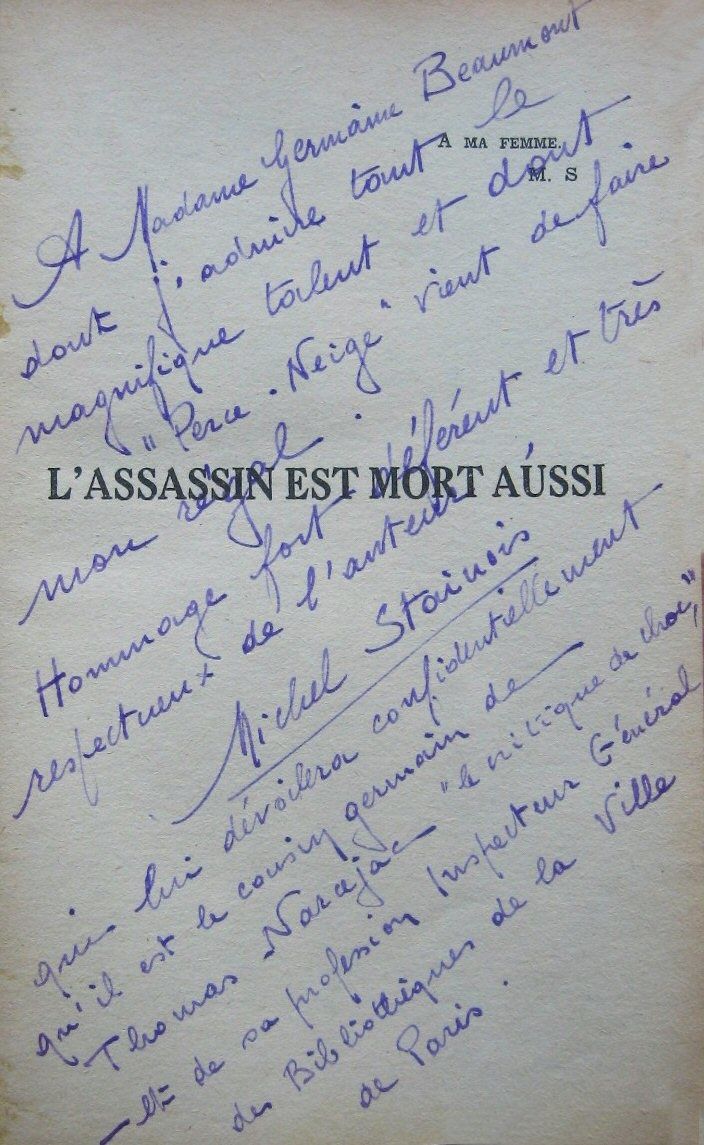 A MA FEMME.
M. S
L'ASSASSIN EST MORT AUSSI
A Madame Germaine Beaumont
dont j'admire tant le
magnifique talent et dont
"Perce-Neige" vient de faire
mon régal.
Hommage fort déférent et très
respectueux de l'auteur
Michel Stainois
qui lui dévoilera confidentiellement
qu'il est le cousin germain de
Thomas Narcejac "le critique de choc",
- et de sa profession Inspecteur Général
des Bibliothèques de la Ville
de Paris.